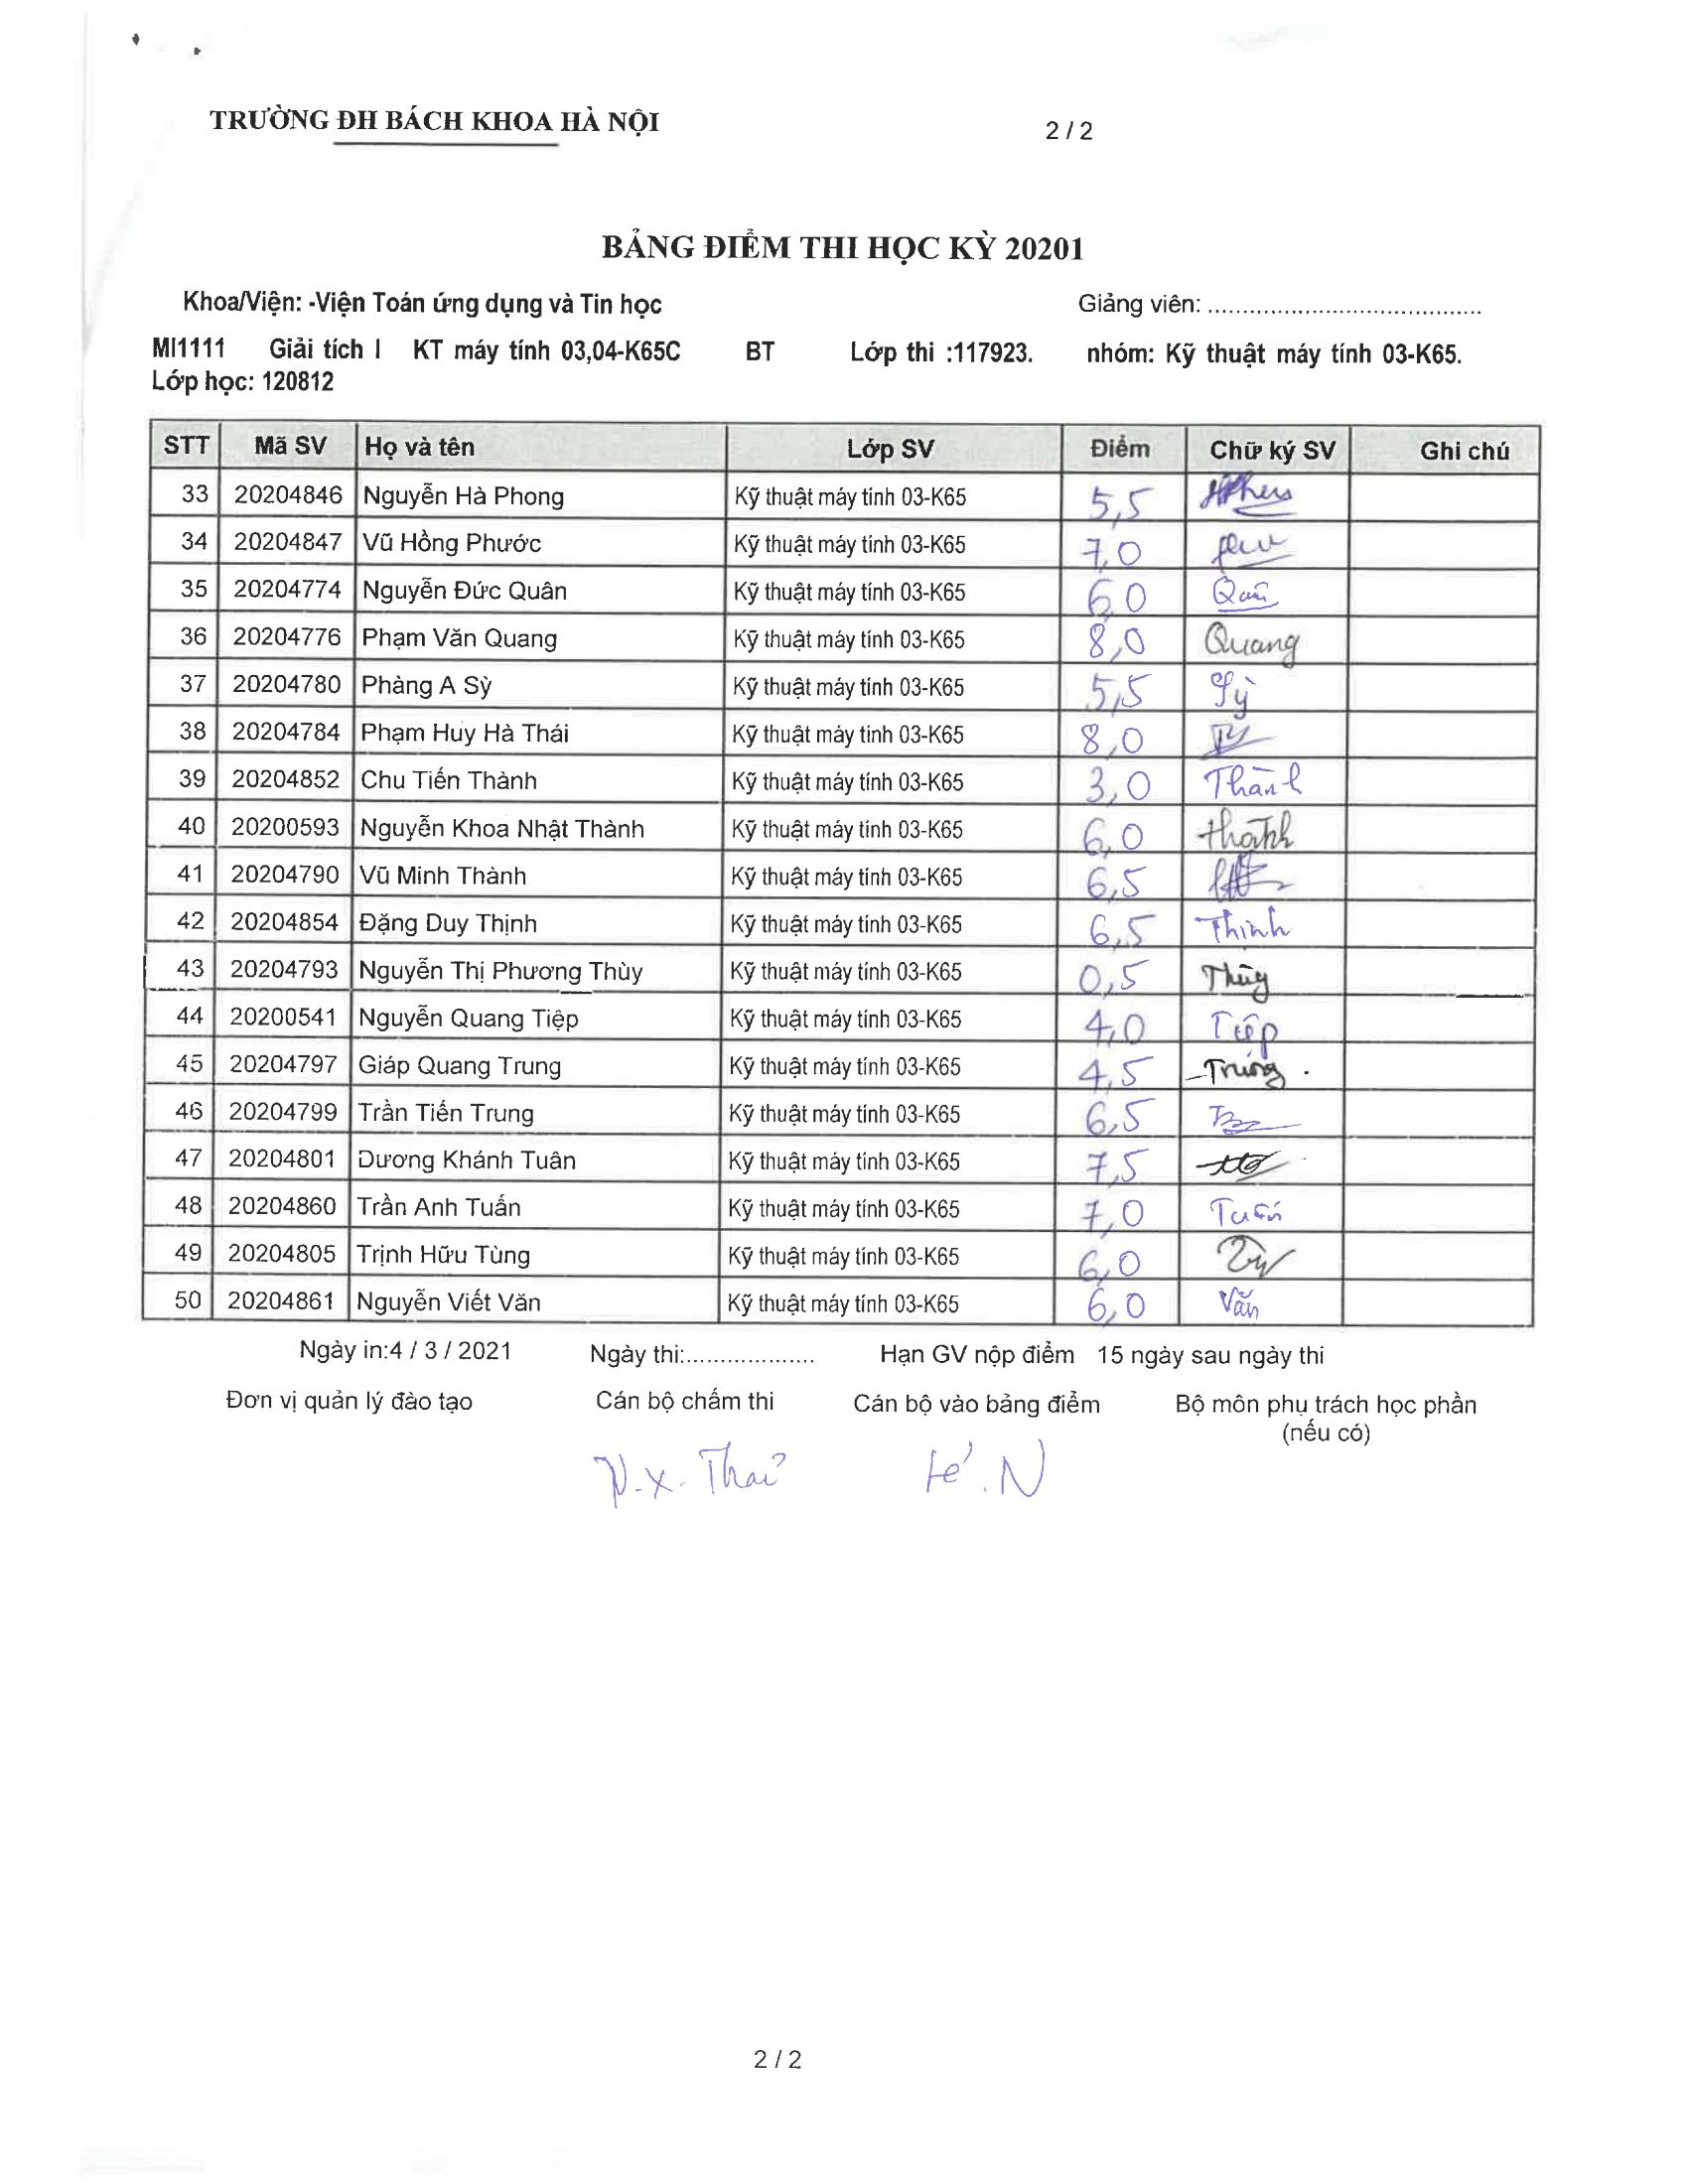 TRƯỜNG ĐH BÁCH KHOA HÀ NỘI 2 / 2
BẢNG ĐIỂM THI HỌC KỲ 20201
Khoa/Viện: -Viện Toán ứng dụng và Tin học Giảng viên: .......................................
MI1111 Giải tích I KT máy tính 03,04-K65C BT Lớp thi :117923. nhóm: Kỹ thuật máy tính 03-K65.
Lớp học: 120812
STT Mã SV Họ và tên Lớp SV Điểm Chữ ký SV Ghi chú
33 20204846 Nguyễn Hà Phong Kỹ thuật máy tính 03-K65 5,5
34 20204847 Vũ Hồng Phước Kỹ thuật máy tính 03-K65 7,0
35 20204774 Nguyễn Đức Quân Kỹ thuật máy tính 03-K65 6,0 Quân
36 20204776 Phạm Văn Quang Kỹ thuật máy tính 03-K65 8,0 Quang
37 20204780 Phàng A Sỳ Kỹ thuật máy tính 03-K65 5,5 Sỳ
38 20204784 Phạm Huy Hà Thái Kỹ thuật máy tính 03-K65 8,0
39 20204852 Chu Tiến Thành Kỹ thuật máy tính 03-K65 3,0 Thành
40 20200593 Nguyễn Khoa Nhật Thành Kỹ thuật máy tính 03-K65 6,0 thành
41 20204790 Vũ Minh Thành Kỹ thuật máy tính 03-K65 6,5
42 20204854 Đặng Duy Thịnh Kỹ thuật máy tính 03-K65 6,5 Thịnh
43 20204793 Nguyễn Thị Phương Thùy Kỹ thuật máy tính 03-K65 0,5 Thùy
44 20200541 Nguyễn Quang Tiệp Kỹ thuật máy tính 03-K65 4,0 Tiệp
45 20204797 Giáp Quang Trung Kỹ thuật máy tính 03-K65 4,5 Trung
46 20204799 Trần Tiến Trung Kỹ thuật máy tính 03-K65 6,5
47 20204801 Dương Khánh Tuân Kỹ thuật máy tính 03-K65 7,5
48 20204860 Trần Anh Tuấn Kỹ thuật máy tính 03-K65 7,0 Tuấn
49 20204805 Trịnh Hữu Tùng Kỹ thuật máy tính 03-K65 6,0
50 20204861 Nguyễn Viết Văn Kỹ thuật máy tính 03-K65 6,0 Văn
Ngày in:4 / 3 / 2021 Ngày thi:................... Hạn GV nộp điểm 15 ngày sau ngày thi
Đơn vị quản lý đào tạo Cán bộ chấm thi Cán bộ vào bảng điểm Bộ môn phụ trách học phần
(nếu có)
N.X. Thai
2 / 2